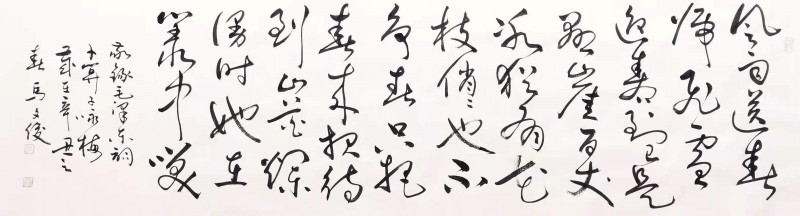 风雨送春
归飞雪
迎春到已是
悬崖百丈
冰犹有花
枝俏〻也不
争春只把
春来报待
到山花烂
漫时她在
丛中笑
敬录毛泽东词
卜算子咏梅
岁在辛丑之
春马文俊